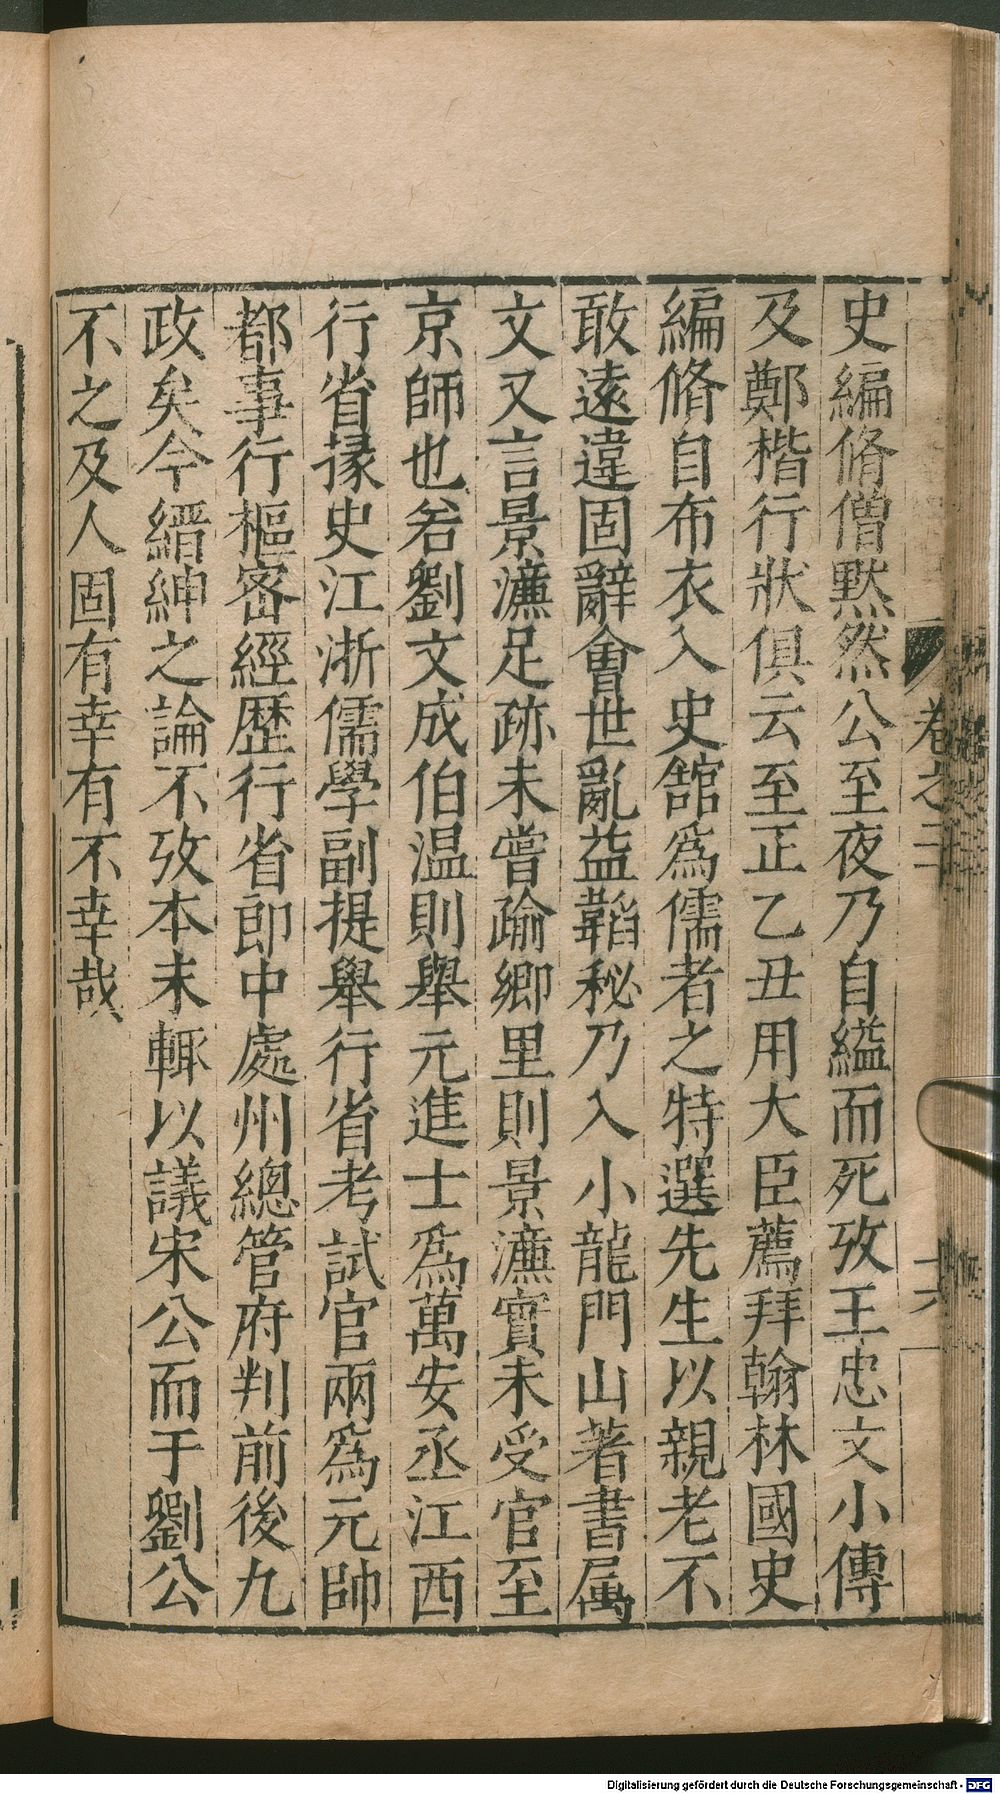 卷之三
十六
史編脩僧黙然公至夜乃自縊而死攷王忠文小傳
及鄭楷行狀俱云至正乙丑用大臣薦拜翰林國史
編脩自布衣入史舘爲儒者之特選先生以親老不
敢遠違固辭會世亂益韜秘乃入小龍門山著書属
文又言景濂足跡未嘗踰鄉里則景濂實未受官至
京師也若劉文成伯温則舉元進士爲萬安丞江西
行省掾史江浙儒學副提舉行省考試官兩爲元帥
都事行樞密經歷行省郎中處州總管府判前後九
政矣今縉紳之論不攷本末輒以議宋公而于劉公
不之及人固有幸有不幸哉
Digitalisierung gefördert durch die Deutsche Forschungsgemeinschaft - DFG